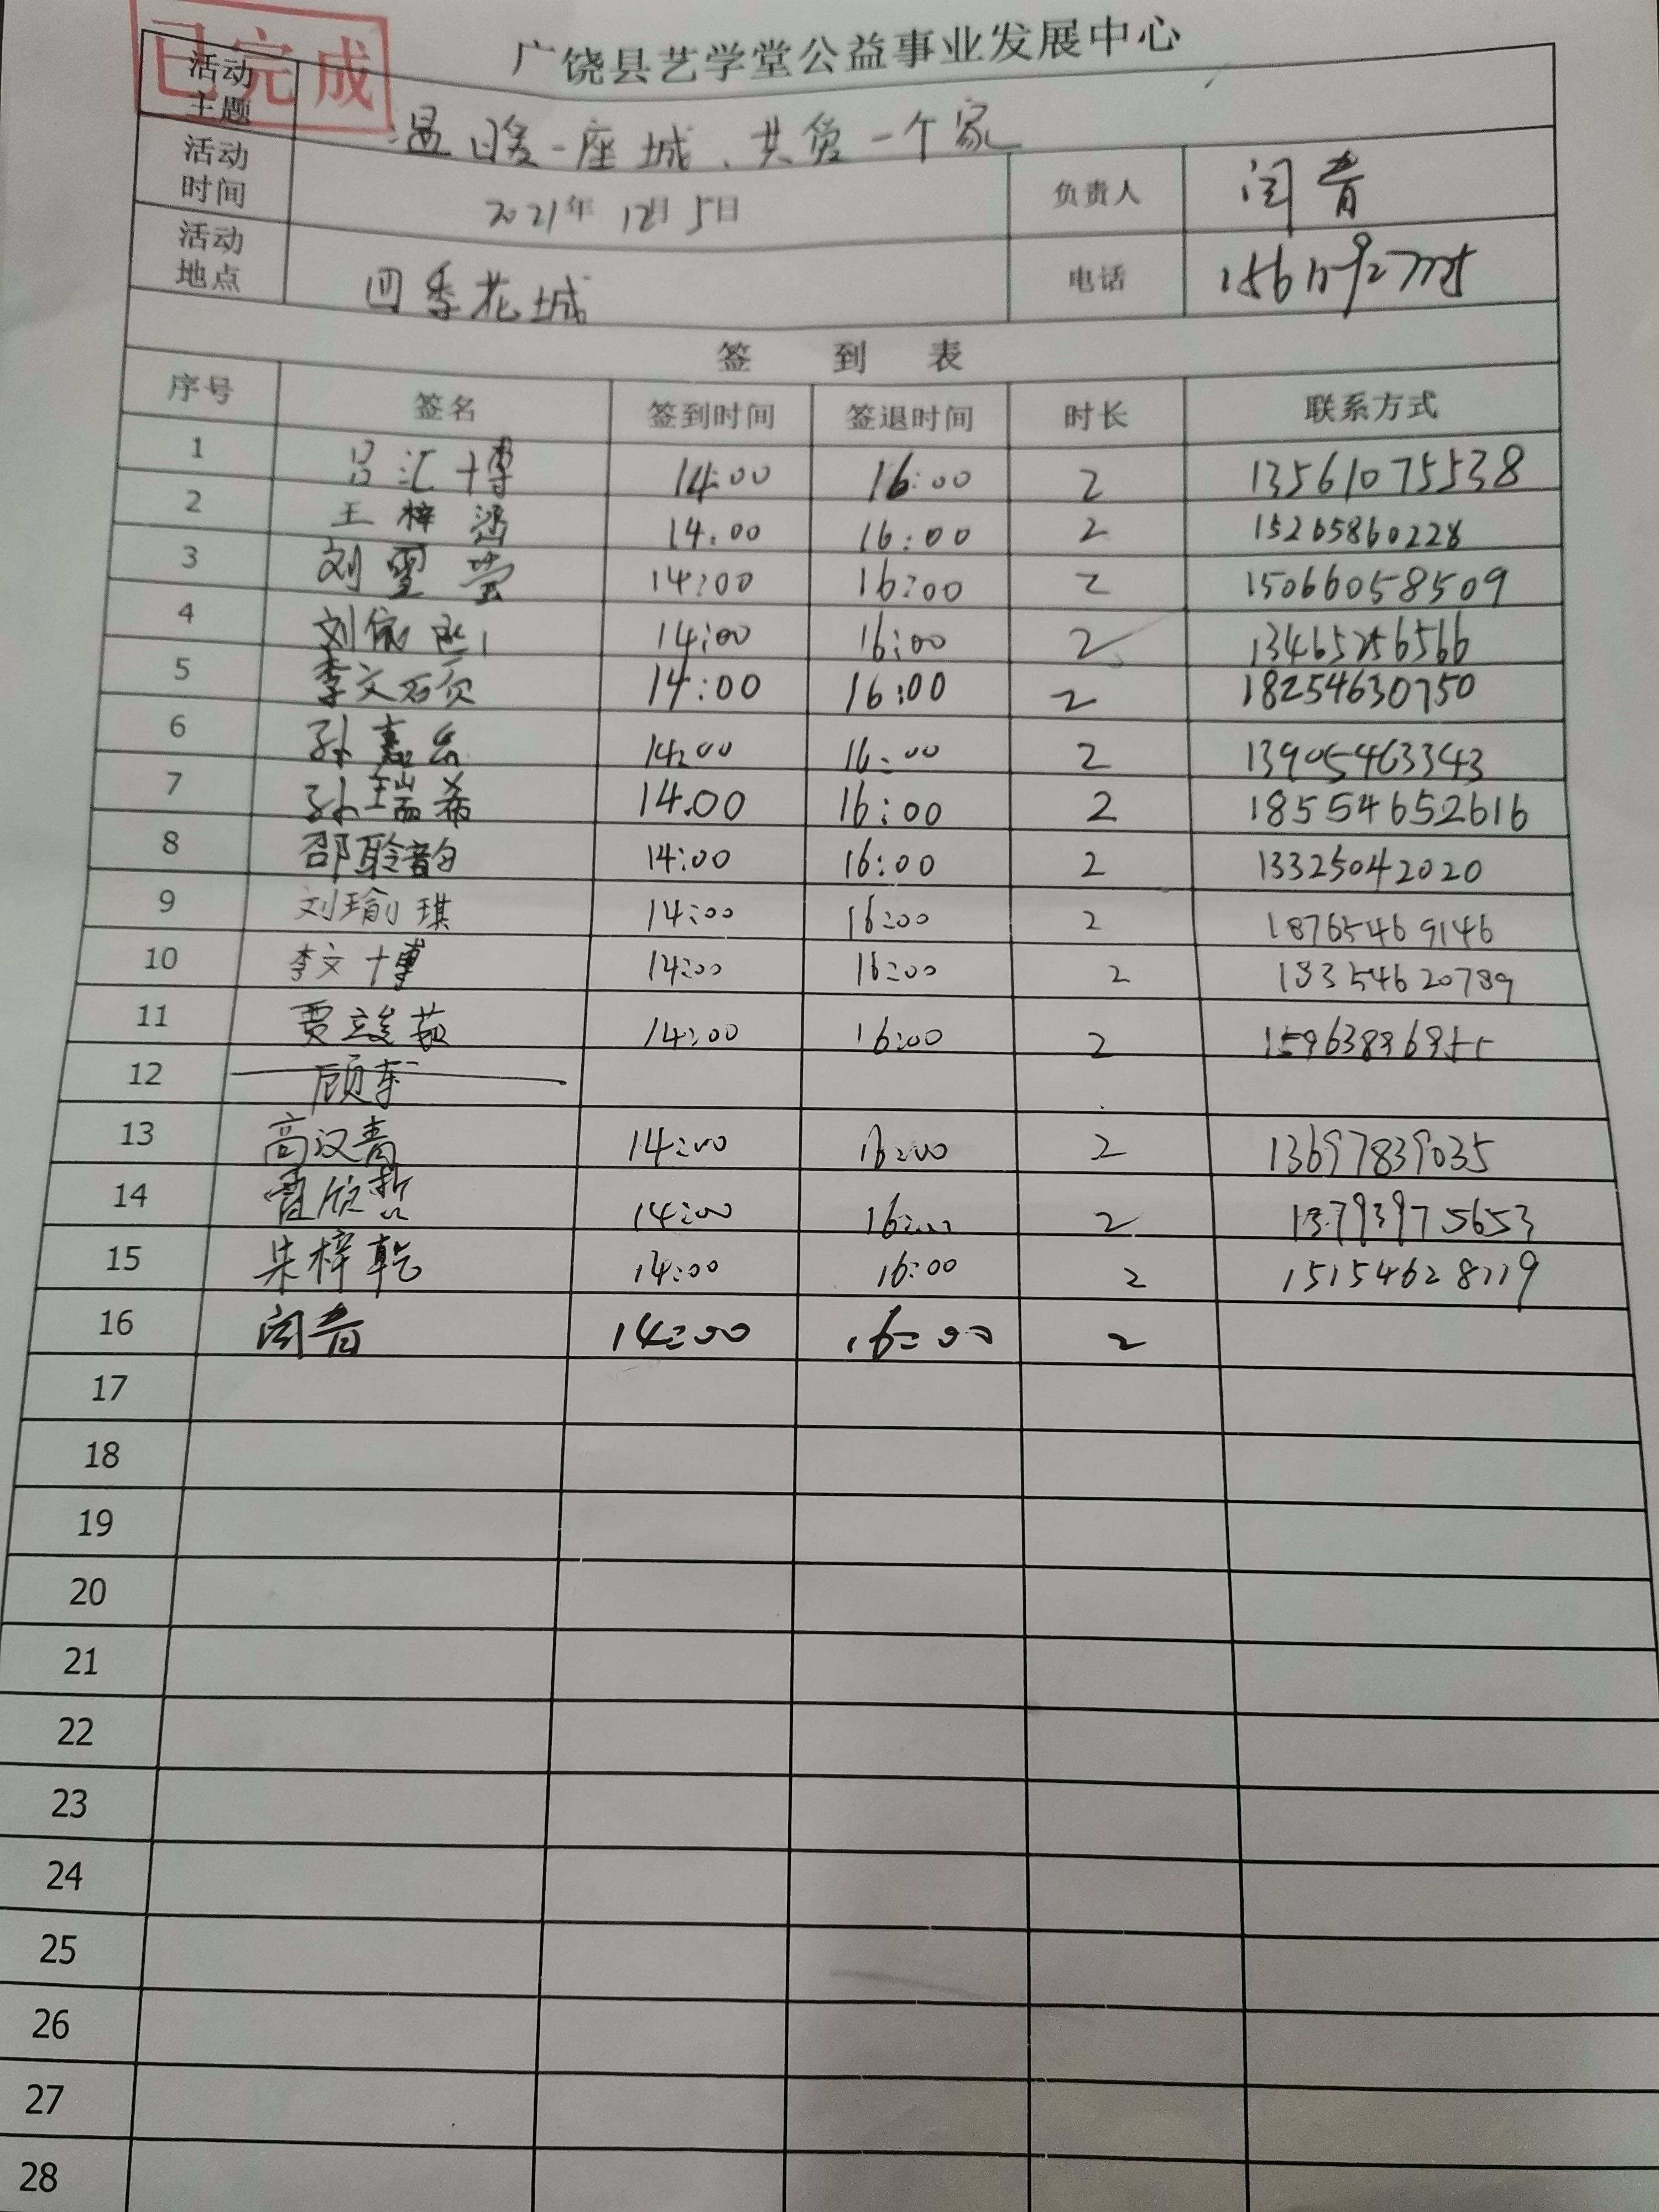 已完成
广饶县艺学堂公益事业发展中心
活动主题 温暖一座城、共爱一个家
活动时间 2021年12月5日 负责人 闫青
活动地点 四季花城 电话
签到表
序号 签名 签到时间 签退时间 时长 联系方式
1 吕汇博 14:00 16:00 2 13561075538
2 王梓涵 14:00 16:00 2 15265860228
3 刘雯莹 14:00 16:00 2 15066058509
4 刘依 14:00 16:00 2 13465256566
5 李文硕 14:00 16:00 2 18254630750
6 孙嘉乐 14:00 16:00 2 13905463343
7 孙瑞希 14.00 16:00 2 18554652616
8 邵聆韵 14:00 16:00 2 13325042020
9 刘瑜琪 14:00 16:00 2 18765469146
10 李文博 14:00 16:00 2 18354620789
11 贾竣茹 14:00 16:00 2
12 顾东
13 高汉青 14:00 16:00 2 13697839035
14 霍欣哲 14:00 16:00 2 13793975653
15 朱梓乾 14:00 16:00 2
16 闫青 14:00 16:00 2
17
18
19
20
21
22
23
24
25
26
27
28